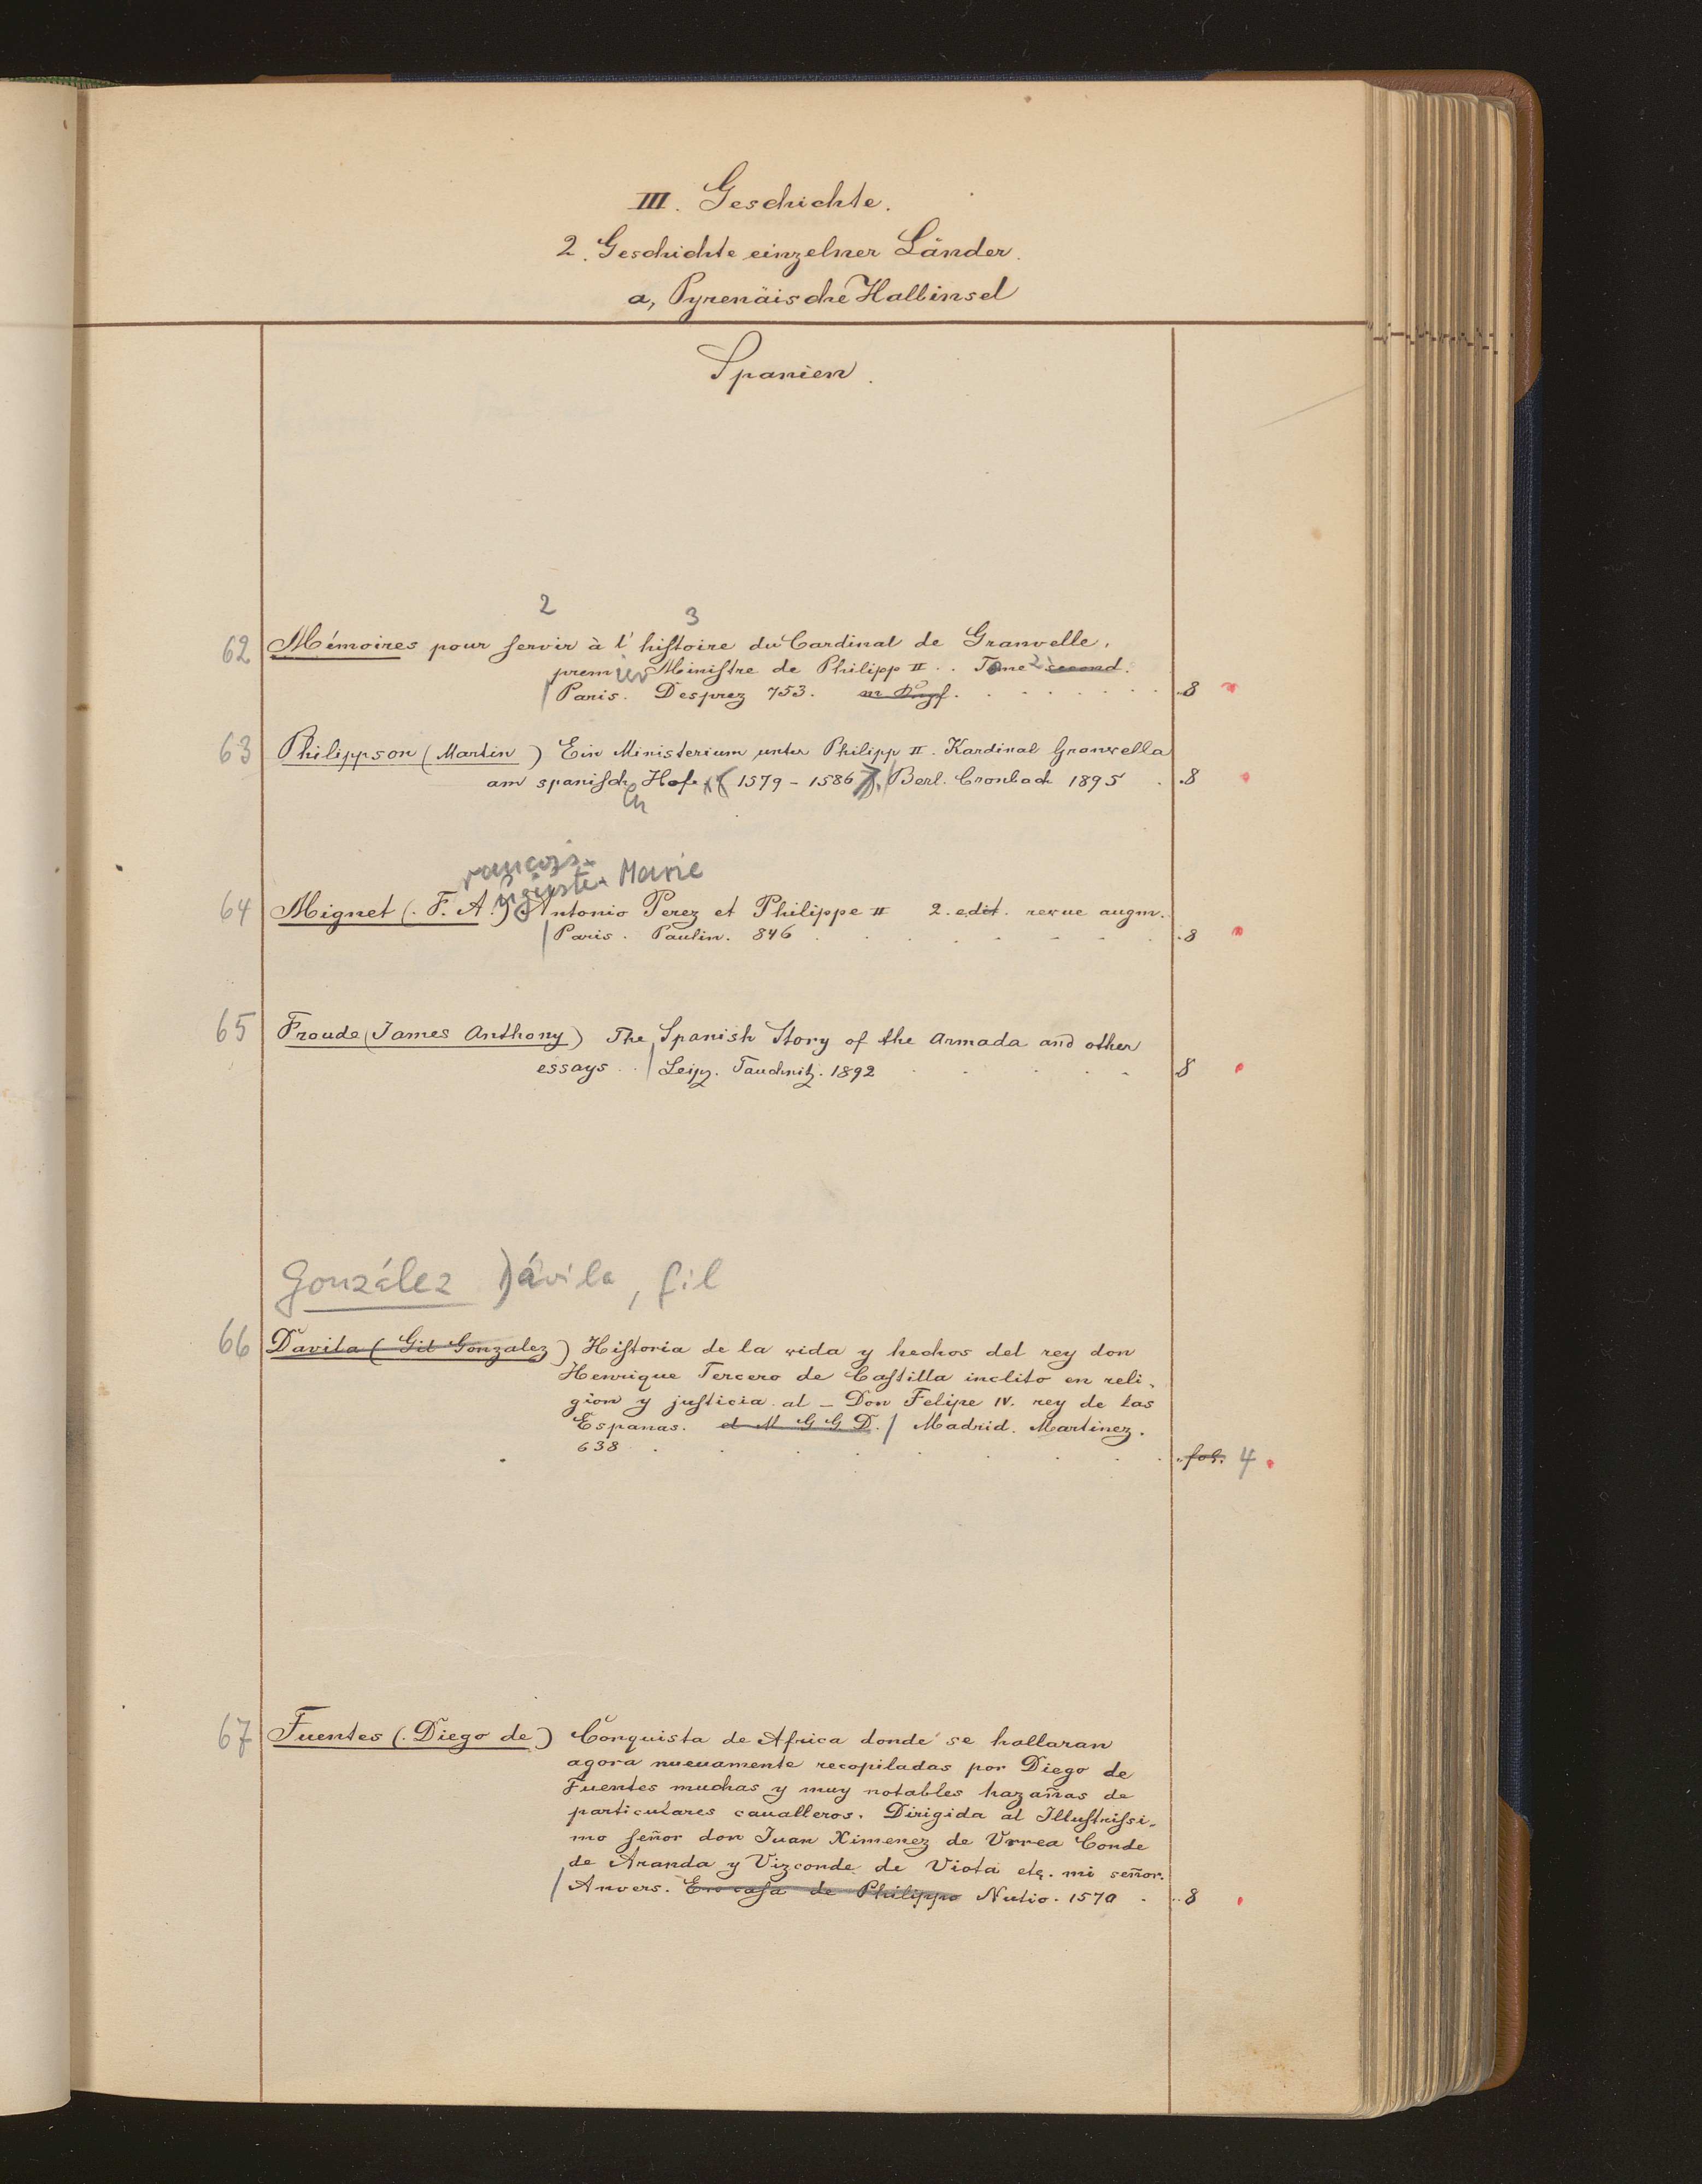 III. Geschichte.
2. Geschichte einzelner Länder.
a, Pyrenäische Halbinsel
Spanien.
2 3
62 Mémoires pour servir à l'histoire du Cardinal de Granvelle,
premier Ministre de Philipp II. . Tome 2 second.
Paris. Desprez 753. m Kupf. 8
63 Philippson (Martin) Ein Ministerium unter Philipp II. Kardinal Granvella
am spanisch Hofe (1579-1586). Berl. Cronbach 1895 . 8
en
rançois-
uguste- Marie
64 Mignet (F. A.) Antonio Perez et Philippe II 2. edit. revue augm.
Paris. Paulin. 846 . 8
65 Froude (James Anthony) The Spanish Story of the Armada and other
essays . . Leipz. Tauchnitz. 1892 8
González Dávila, Gil
66 Davila (Gil Gonzalez) Historia de la vida y hechos del rey don
Henrique Tercero de Castilla inclito en reli-
gion y justicia. al - Don Felipe IV. rey de las
Espanas. el M G G D. / Madrid. Martinez.
638 . fol. 4
67 Fuentes (Diego de) Conquista de Africa donde se hallaran
agora nueuamente recopiladas por Diego de
Fuentes muchas y muy notables hazañas de
particulares caualleros. Dirigida al Illustrissi-
mo señor don Juan Ximenez de Vrrea Conde
de Aranda y Vizconde de Viota etc. mi señor.
Anvers. En casa de Philippo Nutio. 1570 . 8